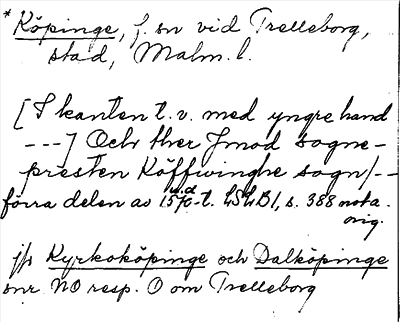 * Köpinge, f. sn vid Trelleborg,
stad, Malm. l.
[I kanten t. v. med yngre hand
---] Och ther Jmod sogne-
presten Köffwinghe sogn/--
förra delen av 1570-t. LSLB1, s. 388 nota.
orig.
jfr Kyrkoköpinge och Dalköpinge
snr NO resp. O om Trelleborg